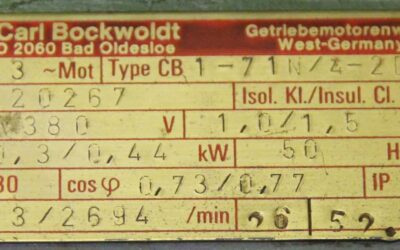 Carl Bockwoldt Getriebemotorenw
O 2060 Bad Oldesloe West-Germany
3 ~Mot Type CB 1-71N/4-2
20267 Isol. Kl./Insul. Cl.
380 V 1,0/1,5
0,3/0,44 kW 50 H
30 cos φ 0,73/0,77 IP
3/2694 /min 26 52